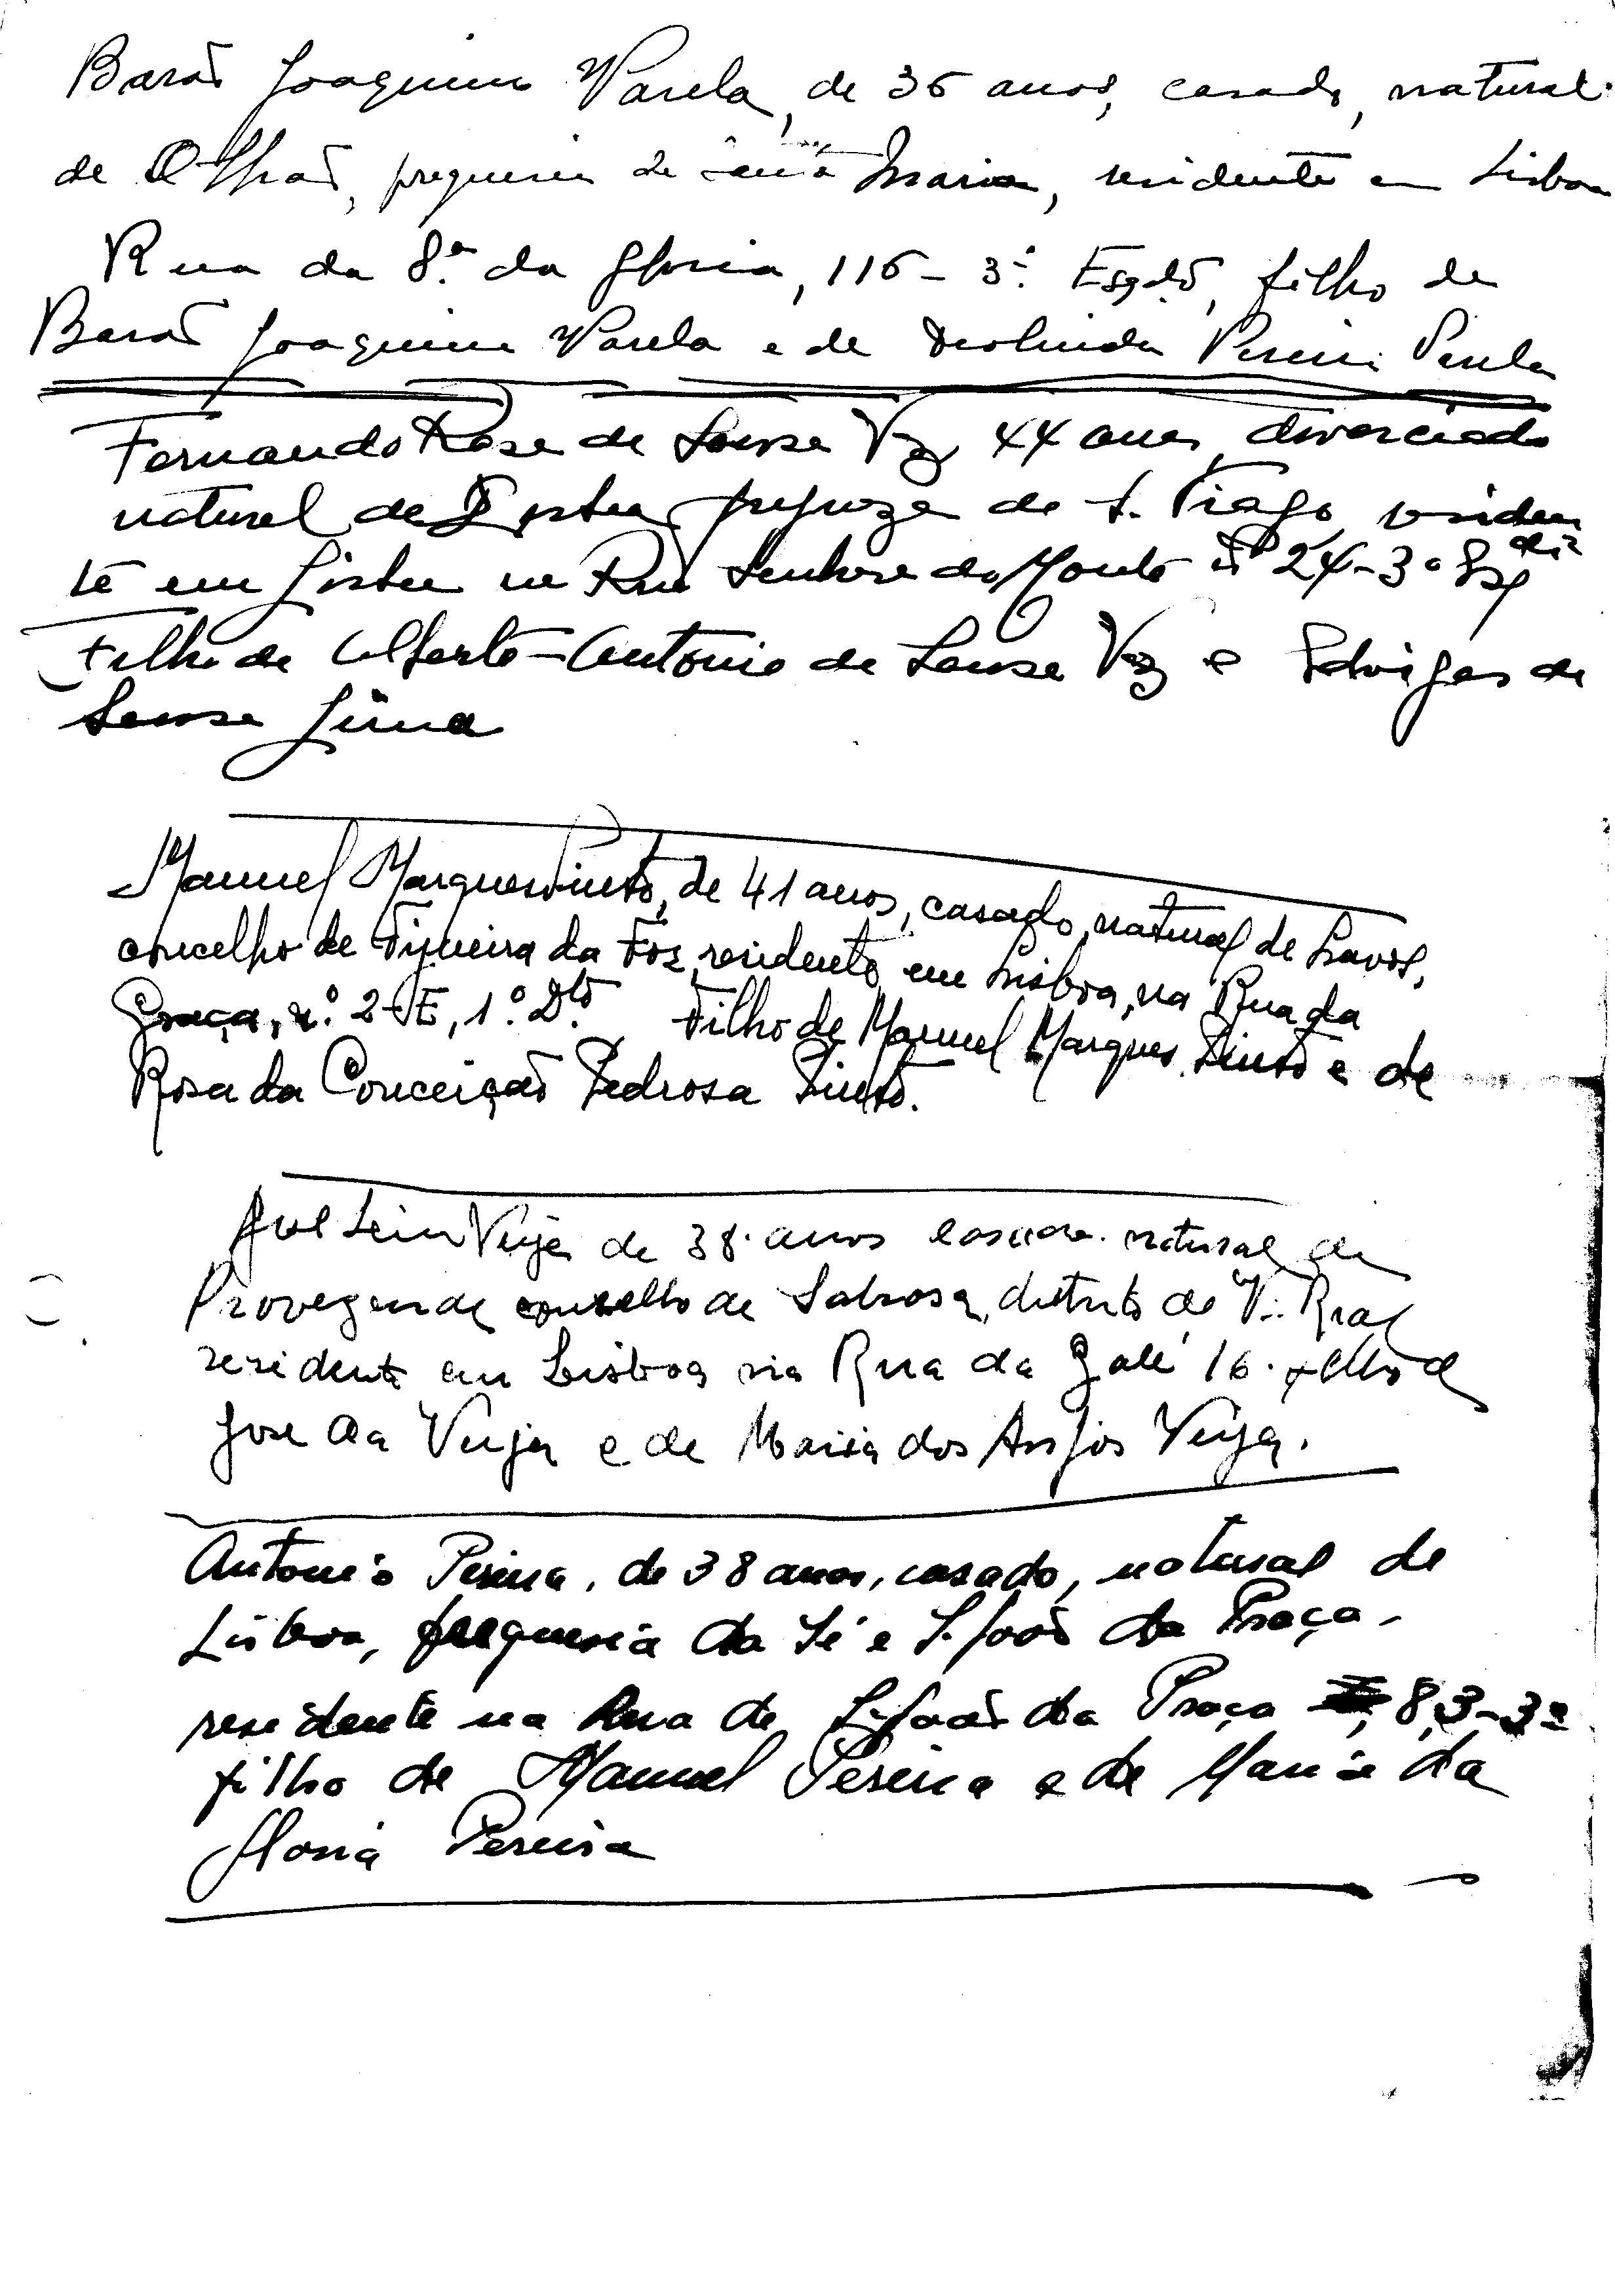 Barão Joaquim Varela, de 36 anos, casado, natural
de Olhão, freguesia de Santa Maria, residente em Lisboa
Rua da 8.ª da Gloria, 116 - 3.º Esqdo, filho de
Barão Joaquim Varela e de Deolinda Pereira Varela
Fernando Rosa de Sousa Vaz 44 anos, divorciado
natural de Lisboa freguezia de S. Tiago residen
te em Lisboa na Rua Senhora do Monte nº 24-3º Esq
Filho de Alberto António de Sousa Vaz e Edviges de
Sousa Lima
Manuel Marques Pinto, de 41 anos, casado, natural de Lavos,
concelho de Figueira da Foz, residente em Lisboa, na Rua da
Graça, n.º 2-E, 1.º Dtº Filho de Manuel Marques Pinto e de
Rosa da Conceição Pedrosa Pinto.
Veiga de 38 anos casado natural de
Provezende concelho de Sabrosa, distrito de V. Real
residente em Lisboa na Rua da Galé 16. filho de
José da Veiga e de Maria dos Anjos Veiga.
Antonio Pereira, de 38 anos, casado, natural de
Lisboa, freguesia da Sé e S. João da Praça,
residente na Rua de S. João da Praça 83-3º
filho de Manuel Pereira e de Maria da
Gloria Pereira